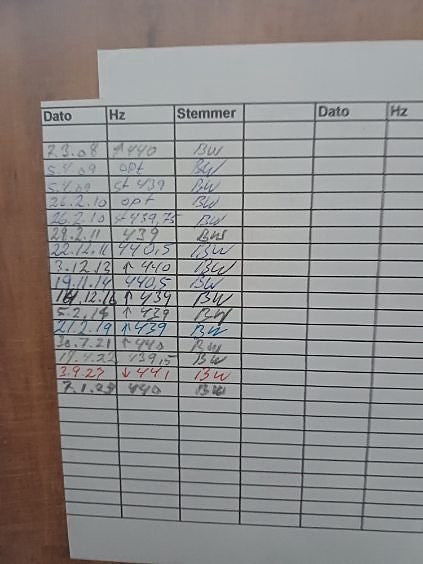 Dato Hz Stemmer Dato Hz
7.3.08 ↑440 BW
5.4.09 opt BW
5.4.09 st 439 BW
26.2.10 opt BW
26.2.10 st 439,75 BW
439 BW
22.12.11 440,5 BW
3.12.13 ↑ 440 BW
19.11.14 440,5 BW
↑ 439 BW
↑ 439 BW
21.2.19 ↑ 439 BW
30.7.21 ↑ 440 BW
439,5 BW
3.9.23 ↓ 441 BW
440 BW